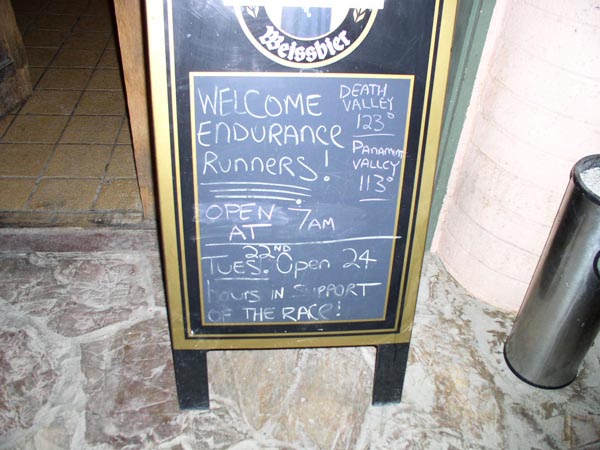 Weissbier
WELCOME
ENDURANCE
RUNNERS!
DEATH
VALLEY
123°
PANAMINT
VALLEY
113°
OPEN
AT 7AM
TUES. 22ND Open 24
hours IN SUPPORT
OF THE RACE!